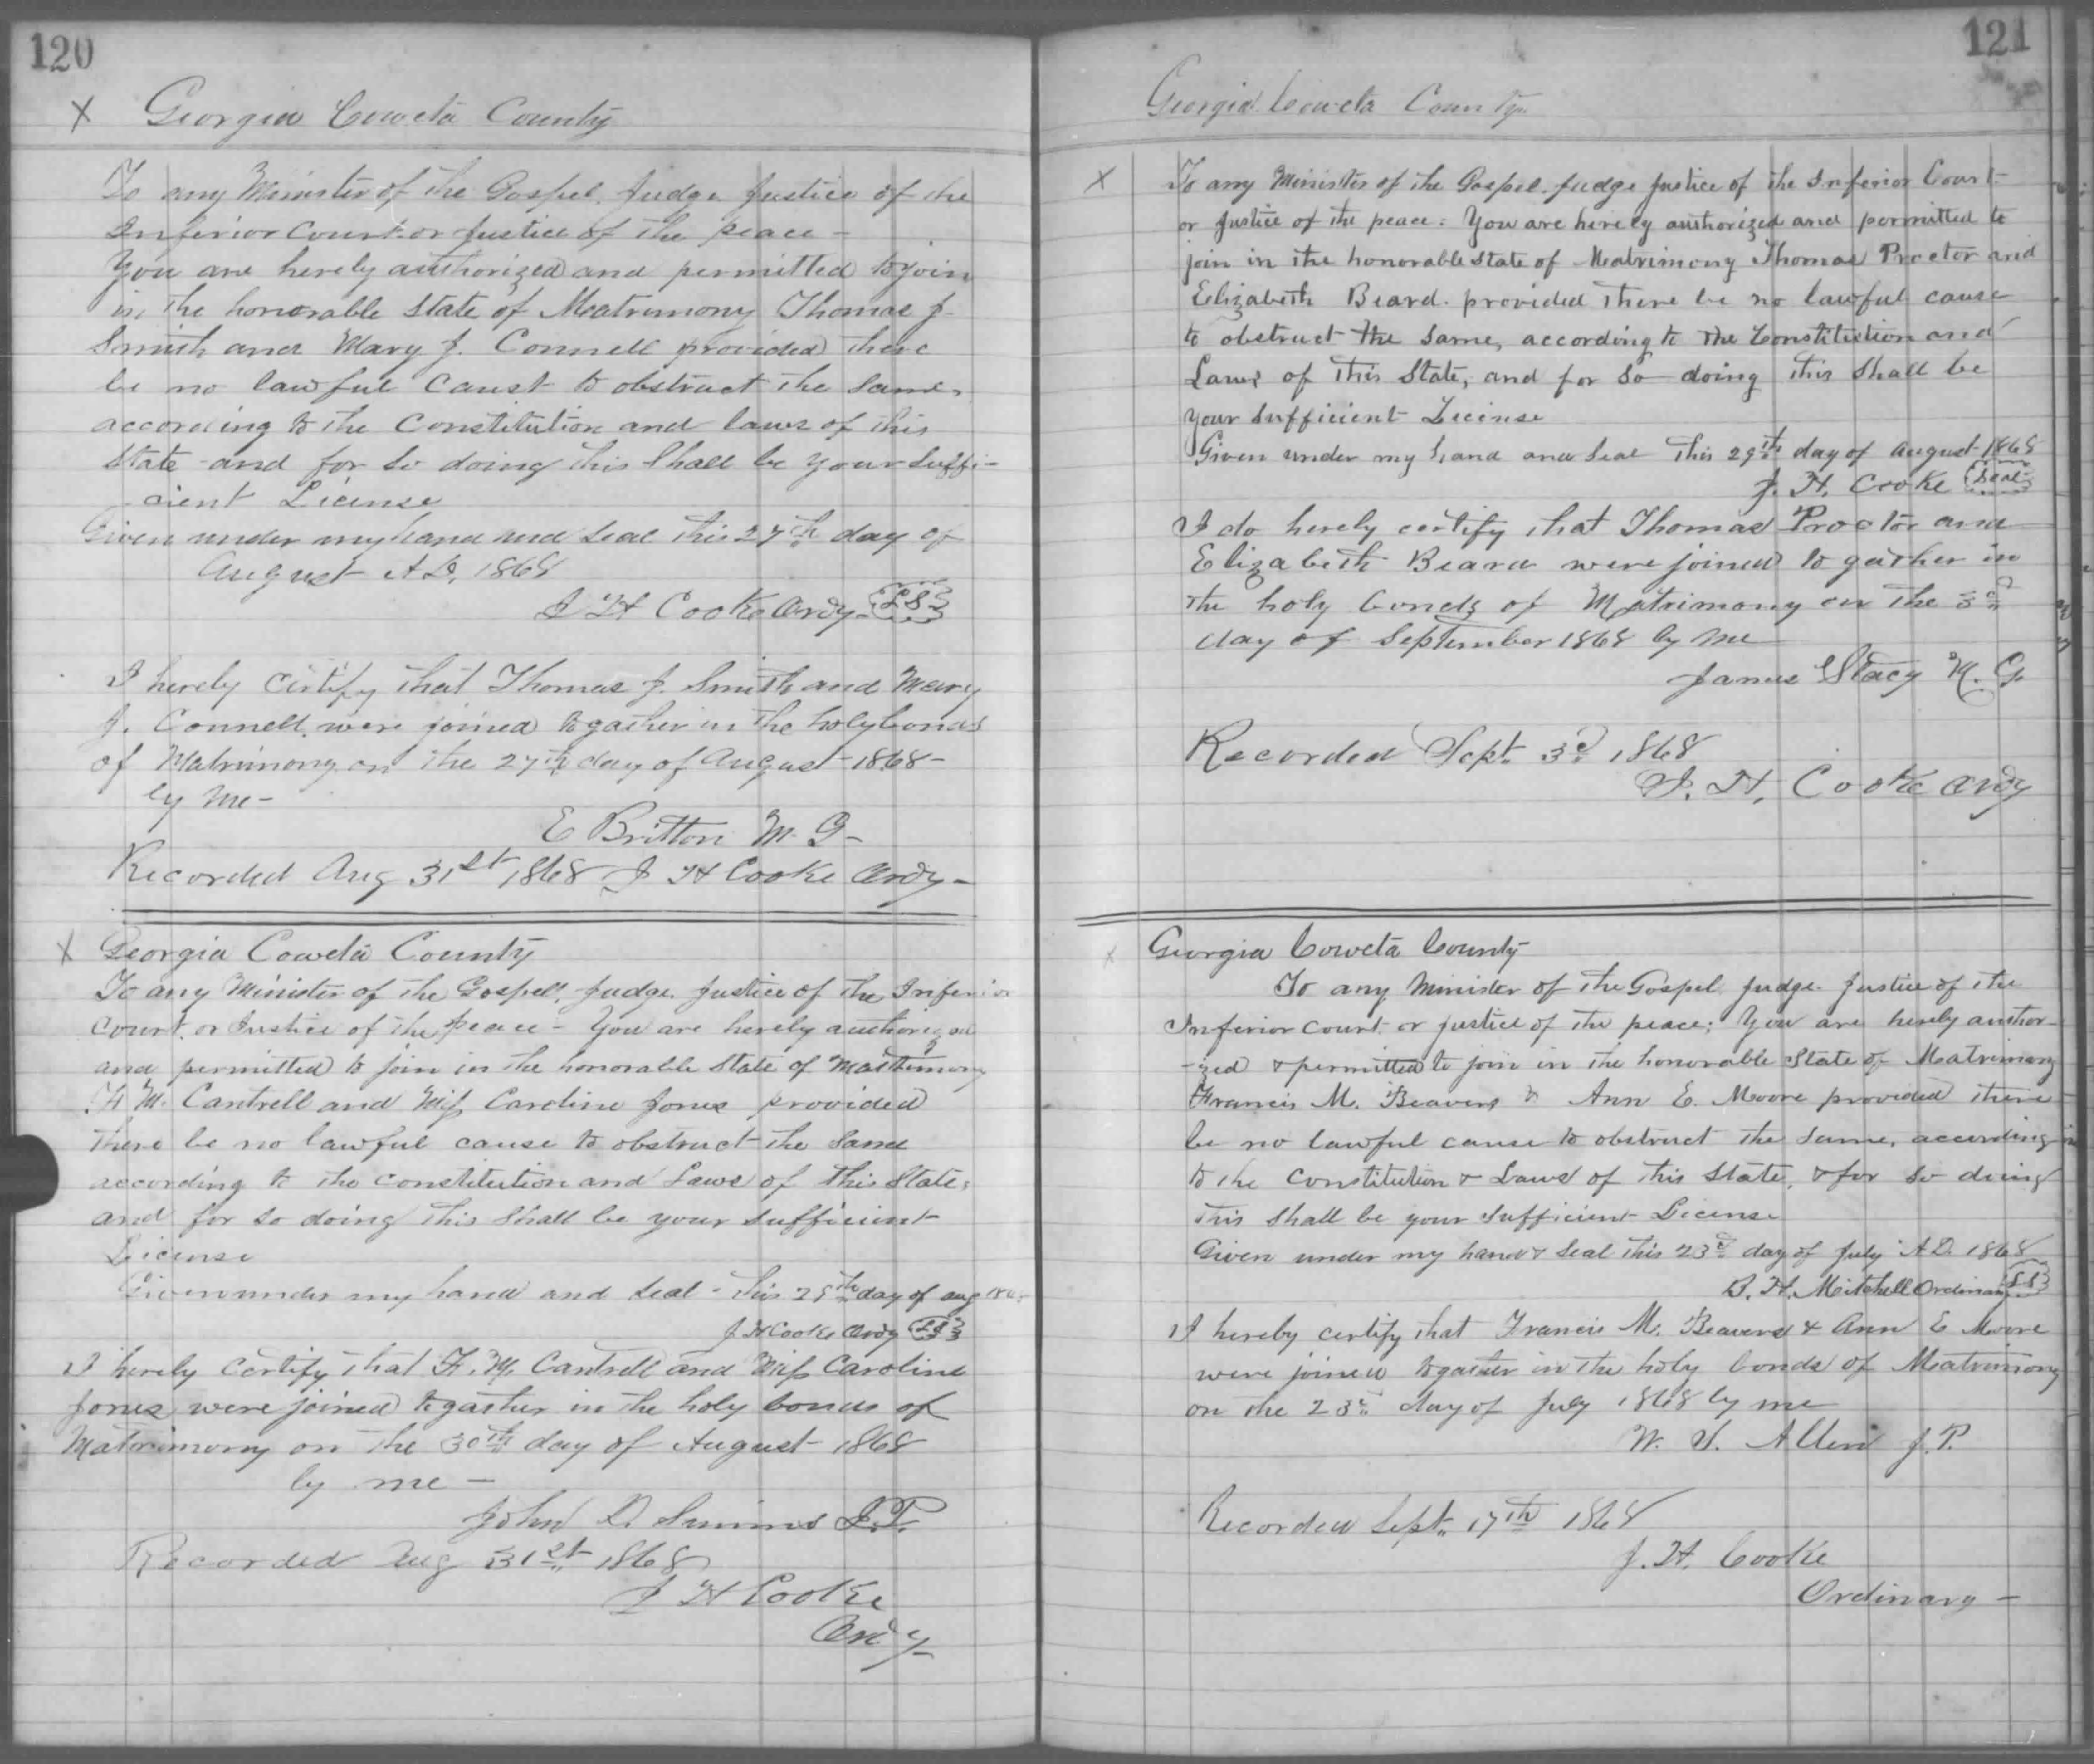 120
X Georgia Coweta County
To any Minister of the Gospel, Judge Justice of the
Inferior Court or Justice of the peace –
You are herely authorized and permitted to join
in the honorable State of Matrimony Thomas J.
Smith and Mary J. Connell provided there
be no lawful caust to obstruct the same,
according to the Constitution and laws of this
State and for so doing this Shall be your suffi-
cient License
Given under my hand and Seal this 27th day of
August A.D. 1868
J H Cooke Ordy L S
I herely certify that Thomas J. Smith and Mary
J. Connell, were joined togather in the holy bonds
of Matrimony on the 27th day of August 1868 –
by me –
E Britton M. G –
Recorded Aug 31st 1868 J H Cooke Ordy –
X Georgia Coweta County
To any Minister of the Gospell, Judge Justice of the Inferior
Court, or Justice of the peace – You are herely authorized
and permitted to join in the honorable State of Matrimony
F. M. Cantrell and Miss Caroline Jones provided
there be no lawful cause to obstruct the Same
according to the constitution and Laws of this State,
and for so doing this Shall be your sufficient
License
Given under my hand and Seal – this day of Aug
J H Cooke Ordy L S
I herely certify that F. M. Cantrell and Miss Caroline
Jones were joined togather in the holy bonds of
Matrimony on the 30th day of August 1868
by me –
John D. Simms J.P.
Recorded Aug 31st 1868
J H Cooke
Ordy –
121
Georgia Coweta County
X To any Minister of the Gospel. Judge Justice of the Inferior Court
or Justice of the peace: You are herely authorized and permitted to
join in the honorable State of Matrimony Thomas Proctor and
Elizabeth Beard. provided there be no lawful cause
to obstruct the same, according to the Constitution and
Laws of this State, and for so doing this Shall be
your sufficient License
Given under my hand and Seal this 29th day of August 1868
J. H. Cooke Seal
I do herely certify that Thomas Proctor and
Elizabeth Beard were joined to gather in
the holy bonds of Matrimony on the 3d
day of September 1868 by me
James Stacy M. G.
Recorded Sept. 3d 1868
J. H. Cooke Ordy
X Georgia Coweta County
To any Minister of the Gospel Judge Justice of the
Inferior court or justice of the peace; You are herely author-
-ized & permitted to join in the honorable State of Matrimony
Francis M. Beavers & Ann E. Moore provided there
be no lawful cause to obstruct the same, according
to the Constitution & Laws of this State, & for so doing
this Shall be your sufficient License
Given under my hand & Seal this 23d day of July A.D. 1868
B. H. Mitchell Ordinary L S
I hereby certify that Francis M. Beavers & Ann E Moore
were joined togather in the holy bonds of Matrimony
on the 23d day of July 1868 by me
W. S. Allen J. P.
Recorded Sept. 17th 1868
J. H. Cooke
Ordinary –